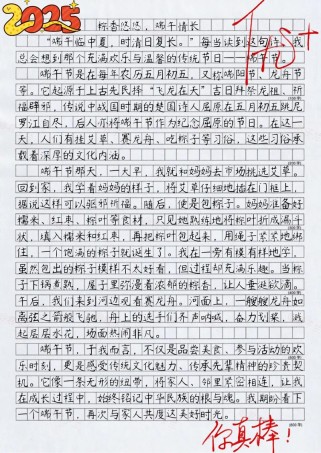 2025
粽香悠悠，端午情长
“端午临中夏，时清日复长。”每当读到这句诗，我
总会想到那个充满欢乐与温馨的传统节日——端午节。
端午节是在每年农历五月初五，又称端阳节、龙舟节
等。它起源于上古先民择“飞龙在天”吉日拜祭龙祖、祈
福辟邪，传说中战国时期的楚国诗人屈原在五月初五跳汨
罗江自尽，后人亦将端午节作为纪念屈原的节日。在这一
天，人们有挂艾草、赛龙舟、吃粽子等习俗，这些习俗承
载着深厚的文化内涵。
端午节那天，一大早，我就和妈妈去市场挑选艾草。
回到家，我学着妈妈的样子，将艾草仔细地插在门框上，
据说这样可以驱邪祈福。随后，便是包粽子。妈妈准备好
糯米、红枣、粽叶等食材，只见她熟练地将粽叶折成漏斗
状，填入糯米和红枣，再把粽叶包起来，用绳子紧紧地绑
住，一个饱满的粽子就诞生了。我在一旁有模有样地学，
虽然包出的粽子模样不太好看，但过程却充满乐趣。当粽
子下锅煮熟，屋子里弥漫着浓郁的粽香，让人垂涎欲滴。
午后，我们来到河边观看赛龙舟。河面上，一艘艘龙舟如
离弦之箭般飞驰，舟上的选手们齐声呐喊，奋力划桨，溅
起层层水花，场面热闹非凡。
端午节，于我而言，不仅是品尝美食、参与活动的欢
乐时刻，更是感受传统文化魅力、传承先辈精神的珍贵契
机。它像一条无形的纽带，将家人、邻里紧密相连，让我
在成长过程中，始终铭记中华民族的根与魂。我期盼着下
一个端午节，再次与家人共度这美好时光。
你真棒！